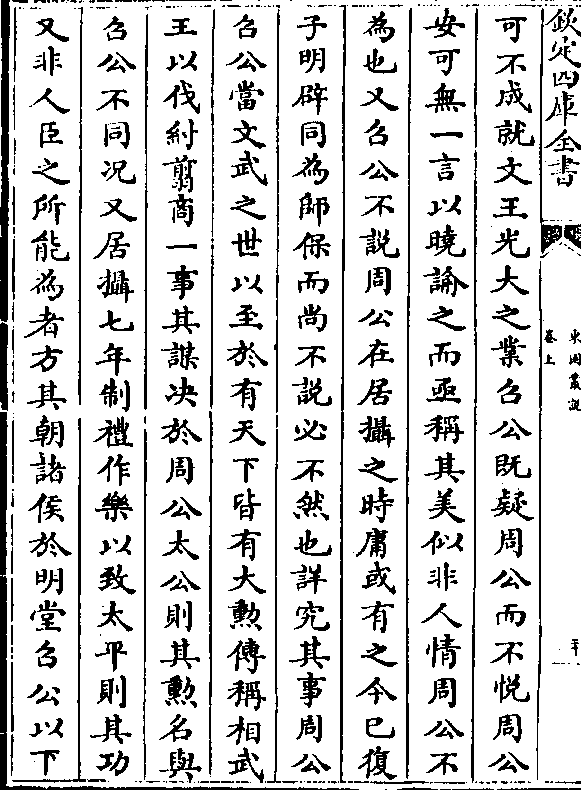 欽定四庫全書
東園叢說
卷上
可不成就文王光大之業召公既疑周公而不悅周公
安可無一言以曉諭之而亟稱其美似非人情周公不
為也又召公不說周公在居攝之時庸或有之今已復
子明辟同為師保而尚不說必不然也詳究其事周公
召公當文武之世以至於有天下皆有大勲傳稱相武
王以伐紂翦商一事其謀决於周公太公則其勲名與
召公不同况又居攝七年制禮作樂以致太平則其功
又非人臣之所能為者方其朝諸侯於明堂召公以下